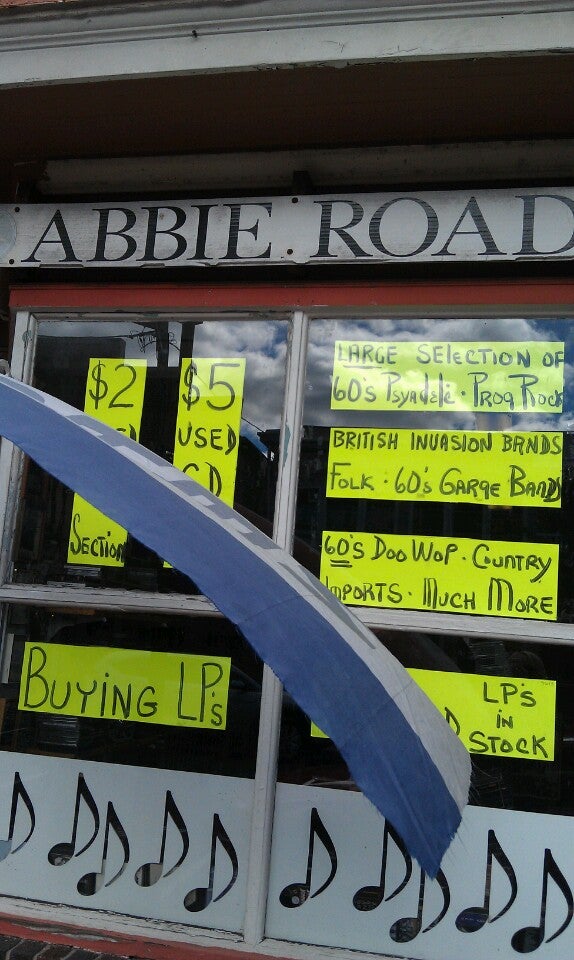 ABBIE ROAD
$2
SECTION
$5
USED
CD
LARGE SELECTION OF
60's PSYADELE · PROG ROCK
BRITISH INVASION BANDS
FOLK · 60's GARGE BANDS
60's DOO WOP · COUNTRY
IMPORTS · MUCH MORE
BUYING LP's
LP's
IN
STOCK